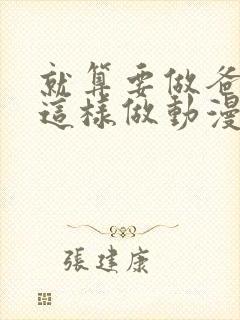 就算要做爸
這樣做動漫
張建康